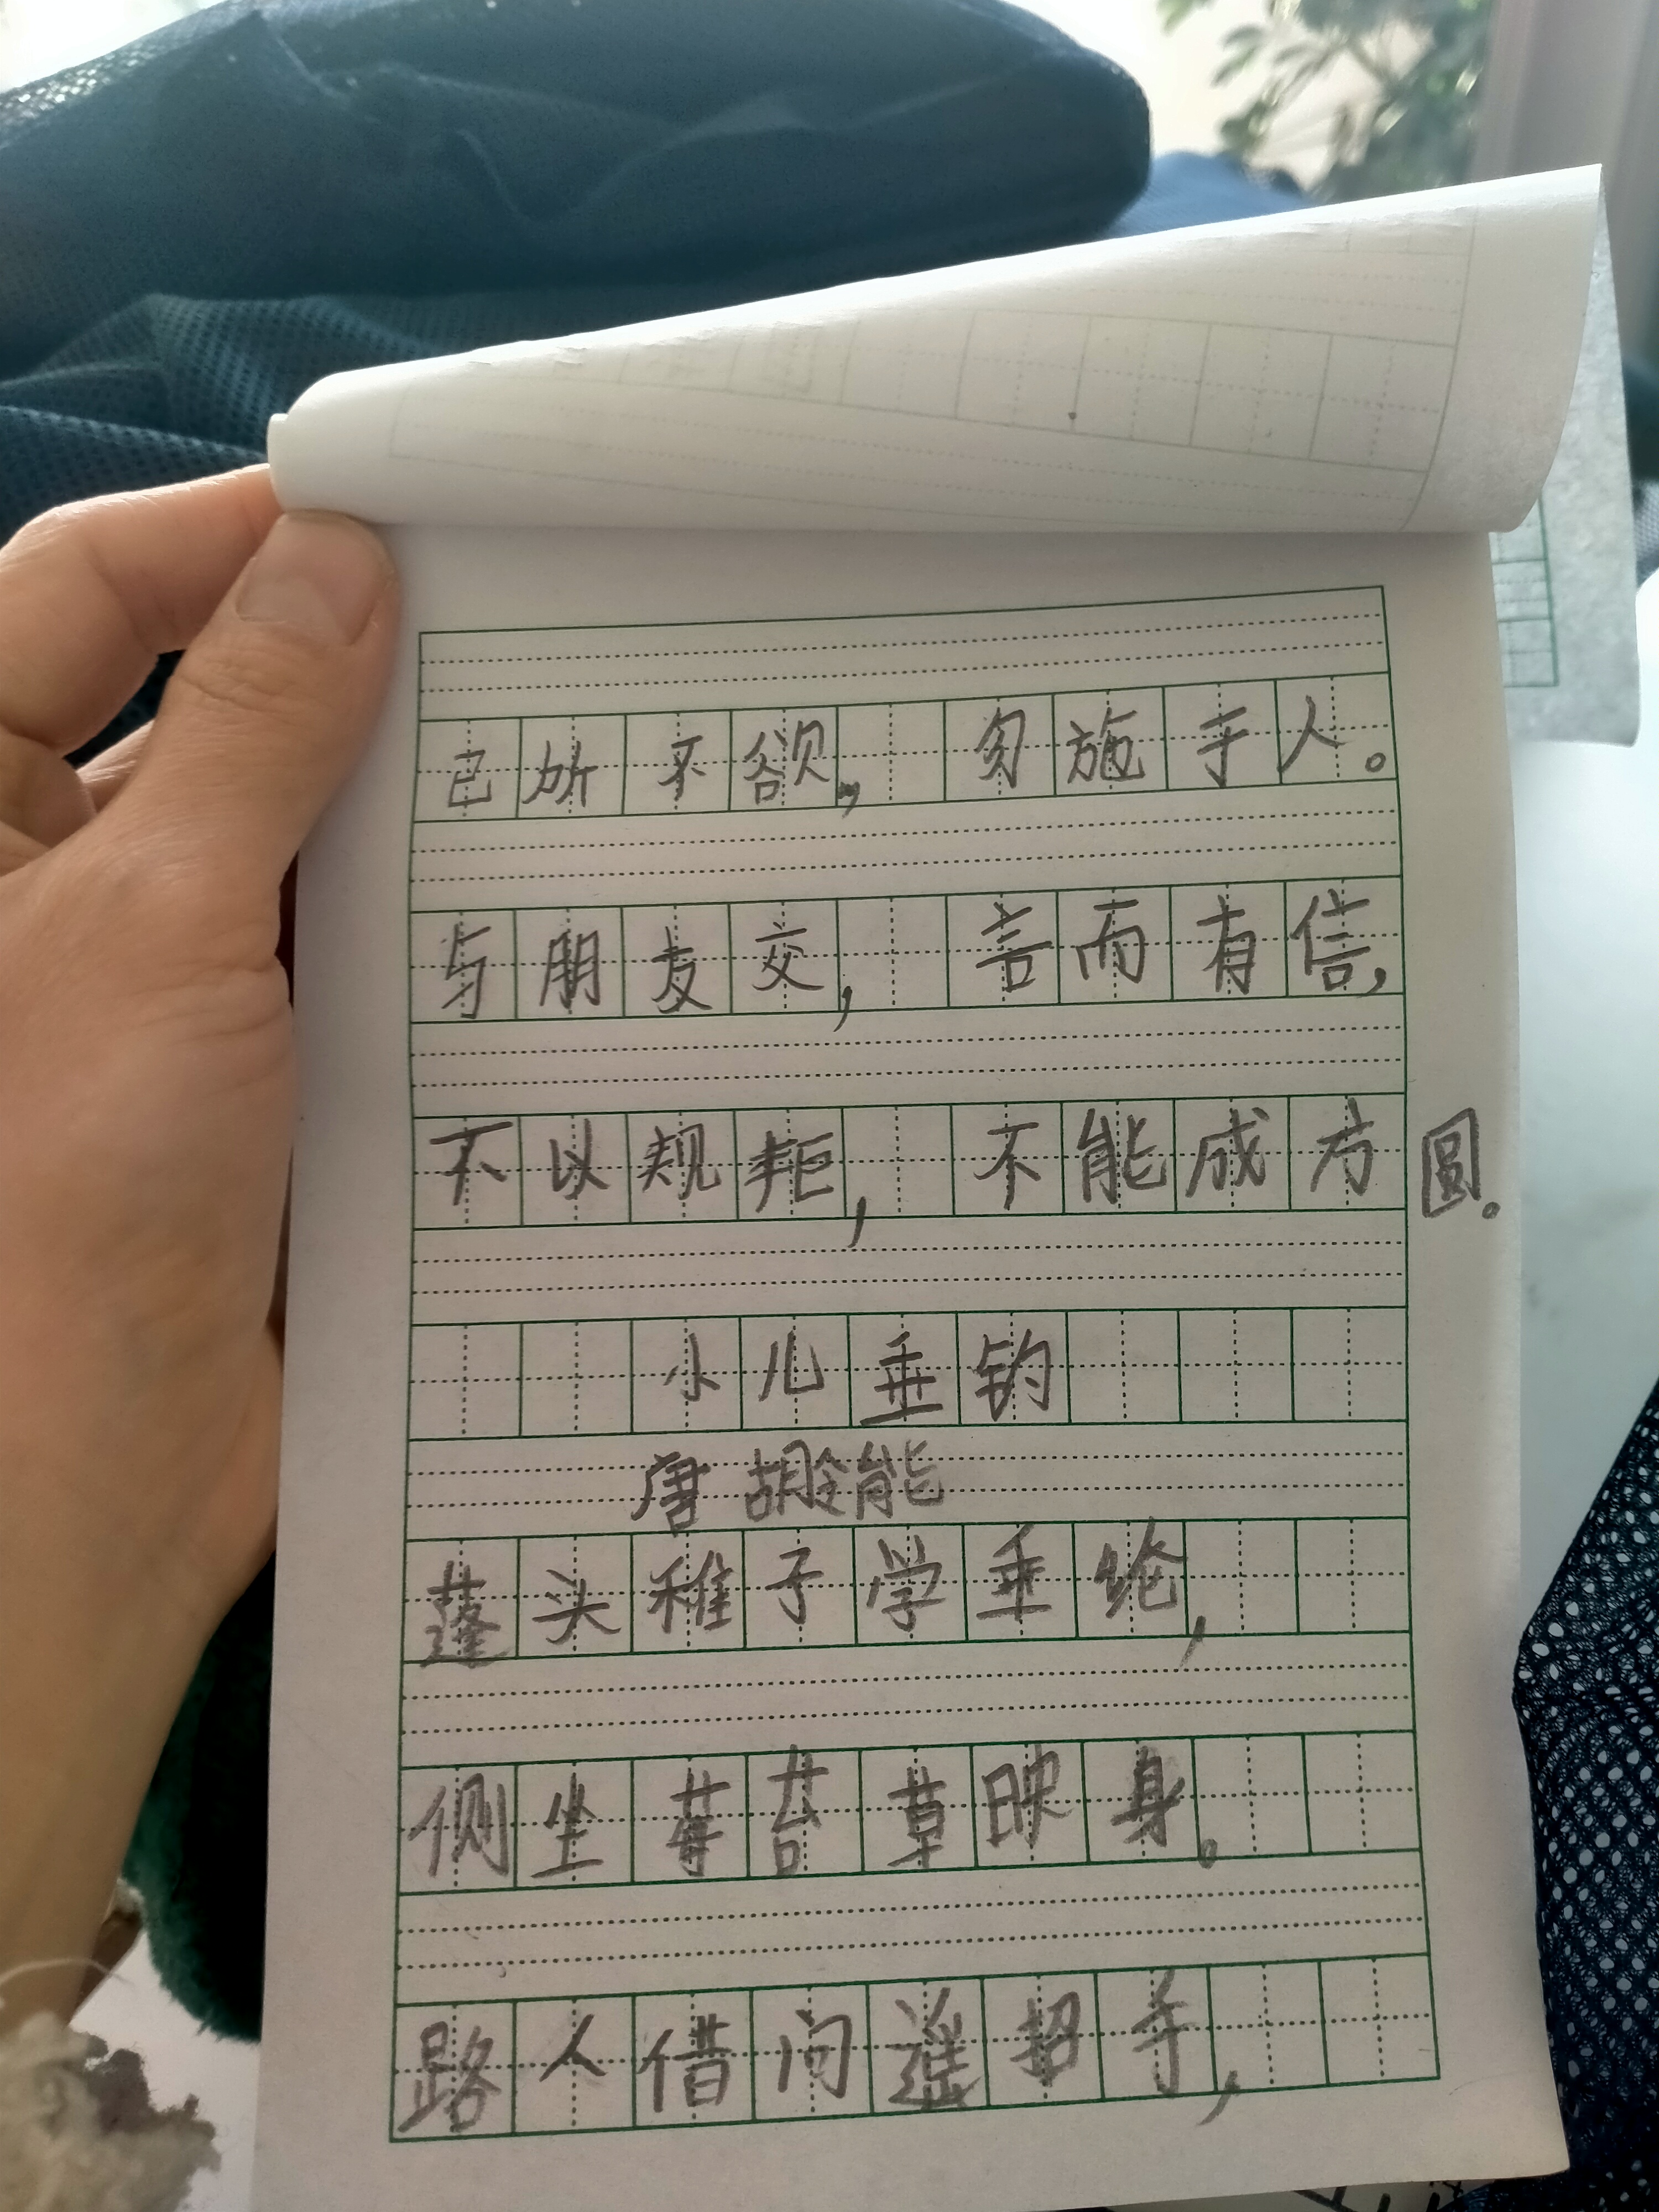 己所不欲, 勿施于人。
与朋友交, 言而有信,
不以规矩, 不能成方圆。
小儿垂钓
唐 胡令能
蓬头稚子学垂纶,
侧坐莓苔草映身。
路人借问遥招手,